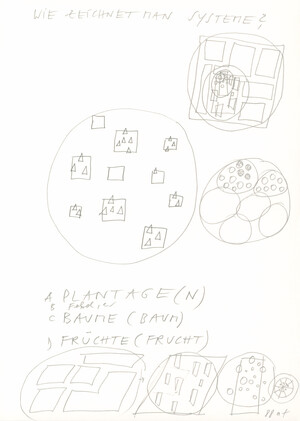 WIE ZEICHNET MAN SYSTEME?
A PLANTAGE(N)
B Felder
C BÄUME (BAUM)
D FRÜCHTE (FRUCHT)